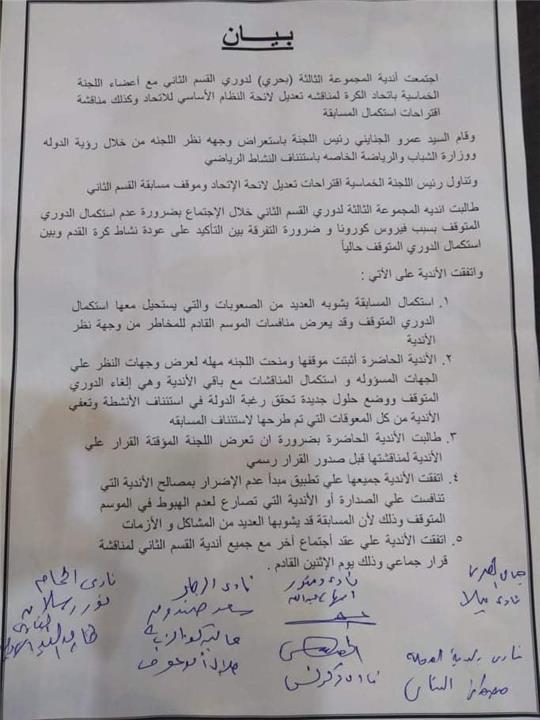 بيـــان
اجتمعت أندية المجموعة الثالثة (بحري) لدوري القسم الثاني مع أعضاء اللجنة
الخماسية باتحاد الكرة لمناقشه تعديل لائحة النظام الأساسي للاتحاد وكذلك مناقشة
اقتراحات استكمال المسابقة
وقام السيد عمرو الجنايني رئيس اللجنة باستعراض وجهه نظر اللجنه من خلال رؤية الدوله
ووزارة الشباب والرياضة الخاصه باستئناف النشاط الرياضي
وتناول رئيس اللجنة الخماسية اقتراحات تعديل لائحة الإتحاد وموقف مسابقة القسم الثاني
طالبت انديه المجموعة الثالثة لدوري القسم الثاني خلال الإجتماع بضرورة عدم استكمال الدوري
المتوقف بسبب فيروس كورونا و ضرورة التفرقة بين التأكيد على عودة نشاط كرة القدم وبين
استكمال الدوري المتوقف حالياً
واتفقت الأندية على الأتي :
١. استكمال المسابقة يشوبه العديد من الصعوبات والتي يستحيل معها استكمال
الدوري المتوقف وقد يعرض منافسات الموسم القادم للمخاطر من وجهة نظر
الأندية
٢. الأندية الحاضرة أثبتت موقفها ومنحت اللجنه مهله لعرض وجهات النظر علي
الجهات المسؤوله و استكمال المناقشات مع باقي الأندية وهي إلغاء الدوري
المتوقف ووضع حلول جديدة تحقق رغبة الدولة في استئناف الأنشطة وتعفي
الأندية من كل المعوقات التي تم طرحها لاستئناف المسابقه
٣. طالبت الأندية الحاضرة بضرورة ان تعرض اللجنة المؤقتة القرار علي
الأندية لمناقشتها قبل صدور القرار رسمي
٤. اتفقت الأندية جميعها علي تطبيق مبدأ عدم الإضرار بمصالح الأندية التي
تنافست علي الصدارة أو الأندية التي تصارع لعدم الهبوط في الموسم
المتوقف وذلك لأن المسابقة قد يشوبها العديد من المشاكل و الأزمات
٥. اتفقت الأندية علي عقد أجتماع أخر مع جميع أندية القسم الثاني لمناقشة
قرار جماعي وذلك يوم الإثنين القادم .
نادى الحمام
نادى
نادى بيلا
نادى دكرنس
نادى بلدية المحلة